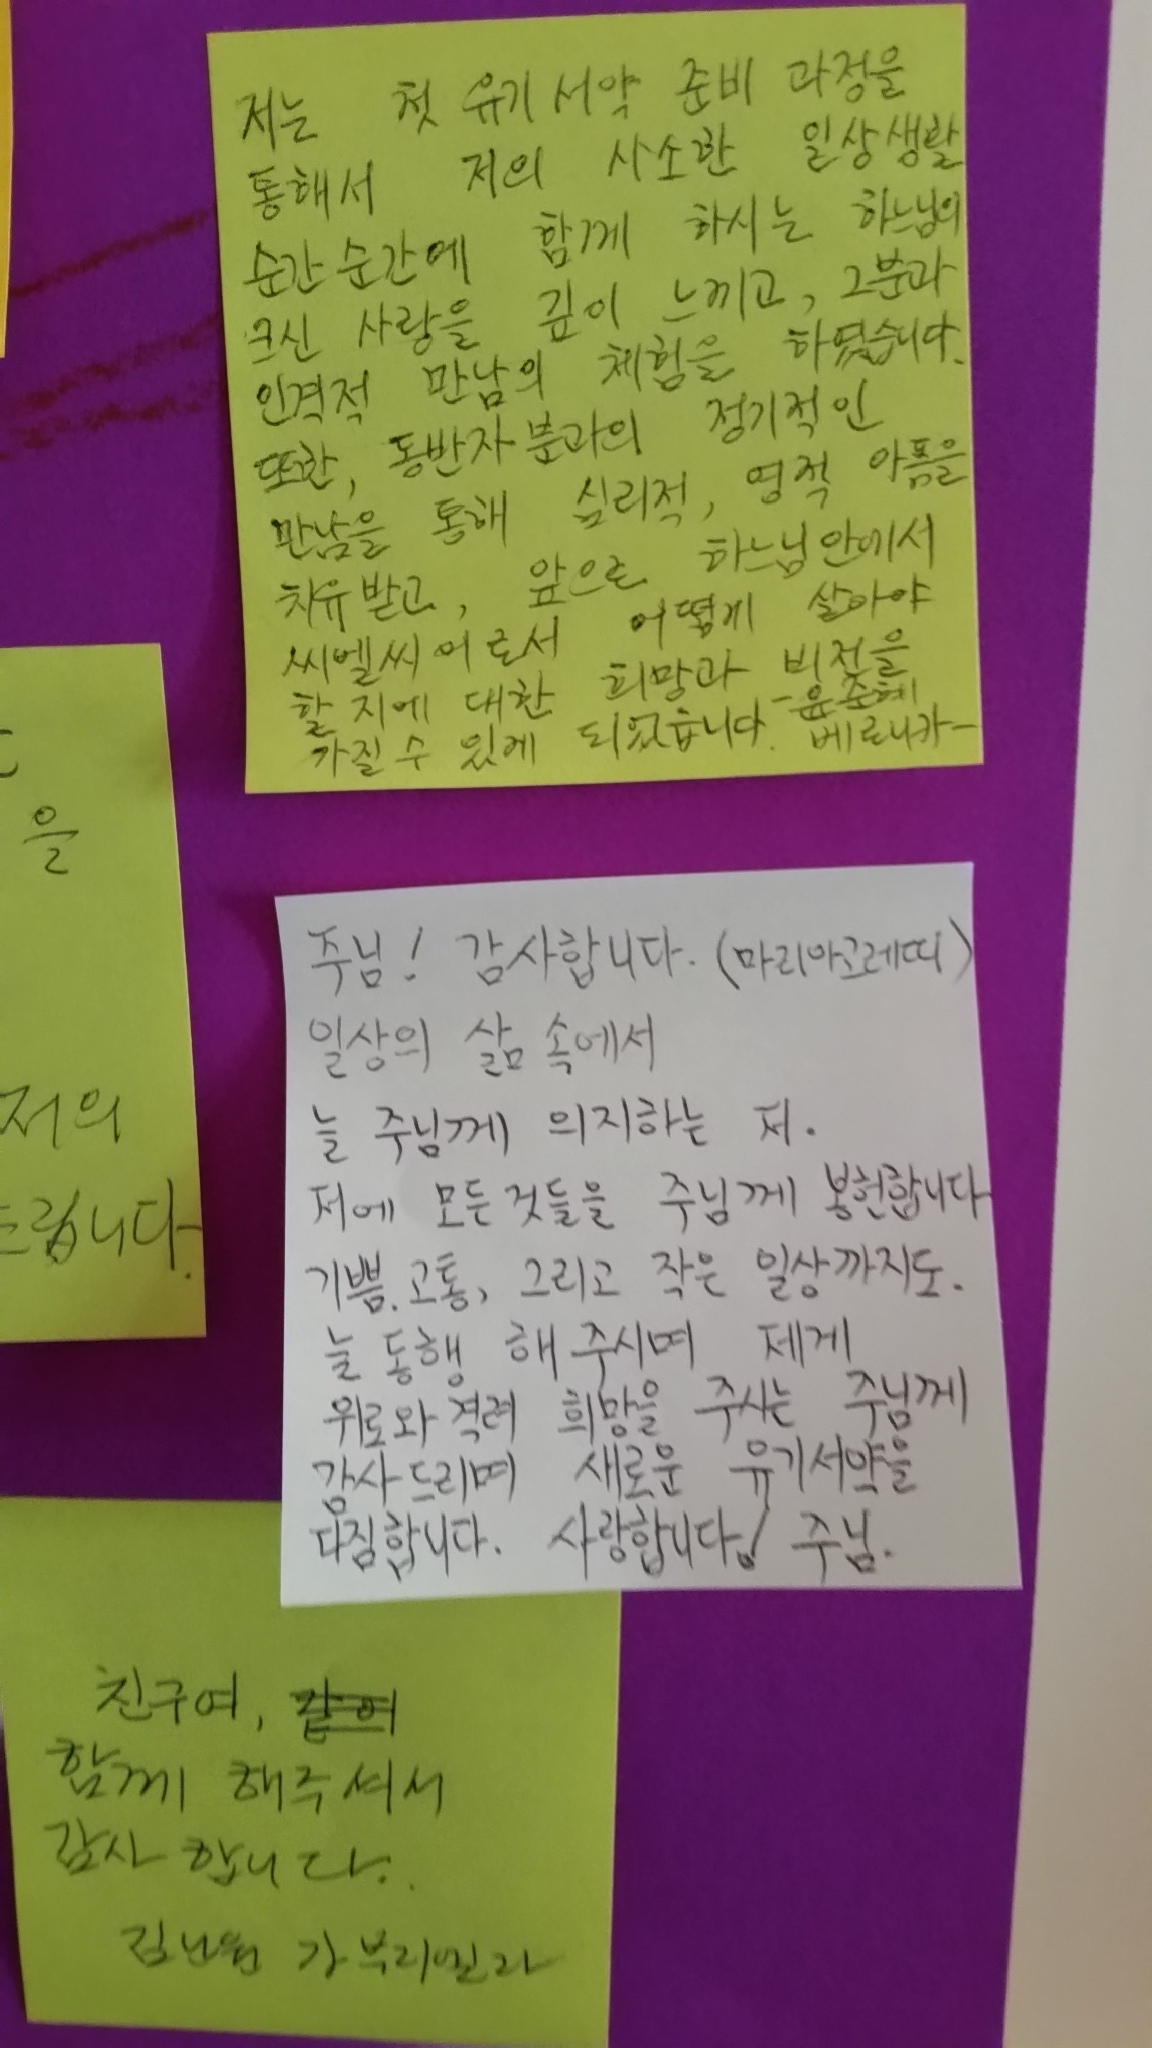 저는 첫 유기서약 준비 과정을
통해서 저의 사소한 일상생활
순간순간에 함께 하시는 하느님의
크신 사랑을 깊이 느끼고, 그분과
인격적 만남의 체험을 하였습니다.
또한, 동반자분과의 정기적인
만남을 통해 심리적, 영적 아픔을
치유받고, 앞으로 하느님안에서
씨엘씨어로서 어떻게 살아야
할 지에 대한 희망과 비젼을
가질 수 있게 되었습니다. -윤준혜
베로니카-
을
저의
드립니다.
주님! 감사합니다. (마리아고레띠)
일상의 삶 속에서
늘 주님께 의지하는 저.
저에 모든것들을 주님께 봉헌합니다
기쁨.고통, 그리고 작은 일상까지도.
늘 동행 해주시며 제게
위로와 격려 희망을 주시는 주님께
감사드리며 새로운 유기서약을
다짐합니다. 사랑합니다! 주님.
친구여, 같이
함께 해주셔서
감사합니다.
가브리엘라